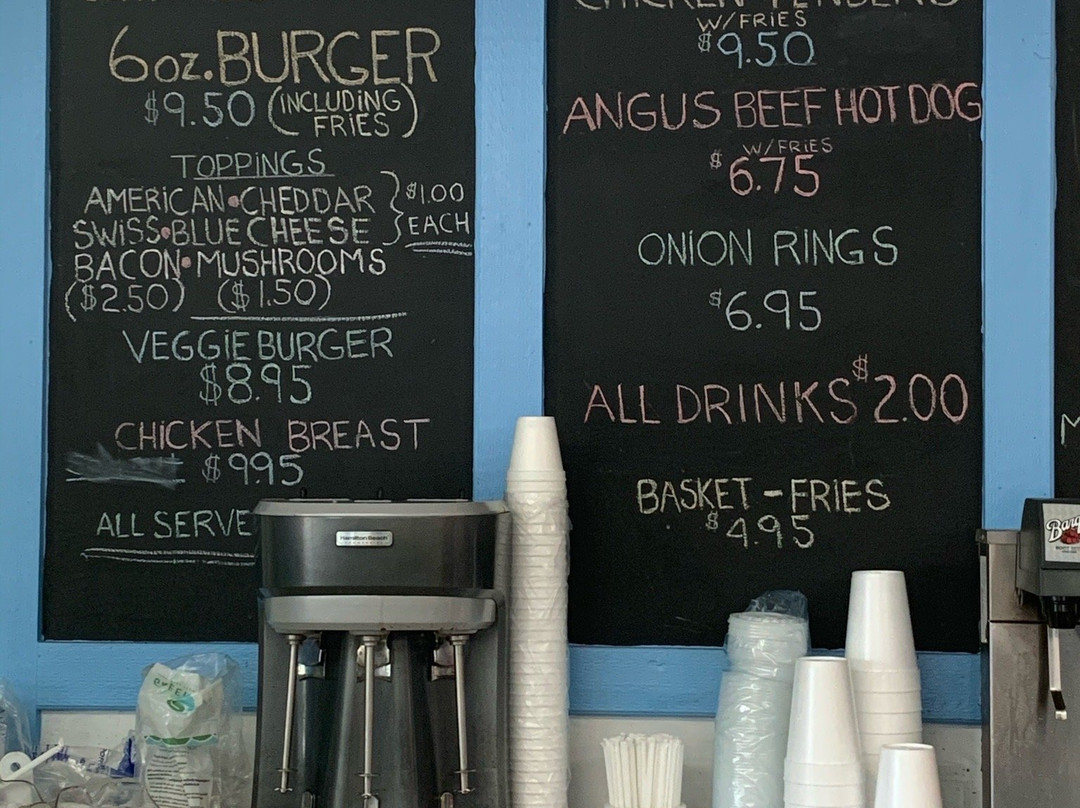 6oz. BURGER
$9.50 (INCLUDING
FRIES)
TOPPINGS
AMERICAN • CHEDDAR
SWISS • BLUE CHEESE
$1.00
EACH
BACON • MUSHROOMS
($2.50) ($1.50)
VEGGIE BURGER
$8.95
CHICKEN BREAST
$9.95
ALL SERVE
CHICKEN TENDERS
W/FRIES
$9.50
ANGUS BEEF HOT DOG
W/FRIES
$6.75
ONION RINGS
$6.95
ALL DRINKS $2.00
BASKET - FRIES
$4.95
Hamilton Beach
Barq
M